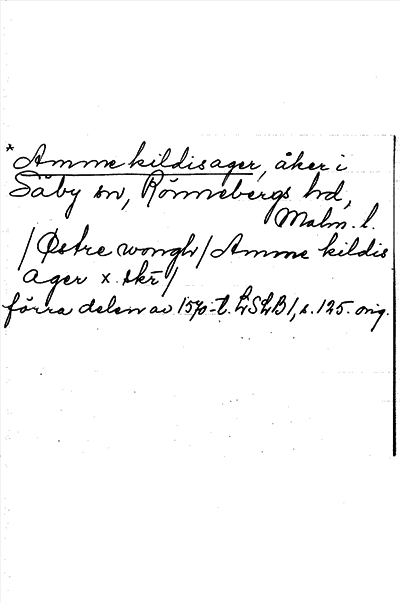 * Ammekildisager, åker i
Säby sn, Rönnebergs hd,
Malm. l.
/Østre wongh/Amme kildis
ager x. skr/
förra delen av 1570-t. LSLB 1, s. 125. orig.